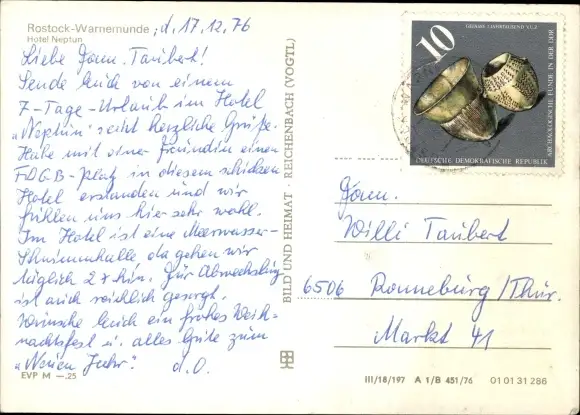 Rostock-Warnemünde ; d. 17.12.76
Hotel Neptun
Liebe Fam. Taubert!
Sende Euch von einem
7-Tage-Urlaub im Hotel
„Neptun" recht herzliche Grüße.
Habe mit einer Freundin einen
FDGB-Platz in diesem schicken
Hotel erstanden und wir
fühlen uns hier sehr wohl.
Im Hotel ist eine Meerwasser-
Schwimmhalle da gehen wir
täglich 2x hin. Für Abwechslung
ist auch reichlich gesorgt.
Wünsche Euch ein frohes Weih-
nachtsfest u. alles Gute zum
„Neuen Jahr". d. O.
EVP M —.25
BILD UND HEIMAT · REICHENBACH (VOGTL)
10
ARCHÄOLOGISCHE FUNDE IN DER DDR
DEUTSCHE DEMOKRATISCHE REPUBLIK
Fam.
Willi Taubert
6506 Ronneburg/Thür.
Markt 41
III/18/197 A 1/B 451/76 01 01 31 286